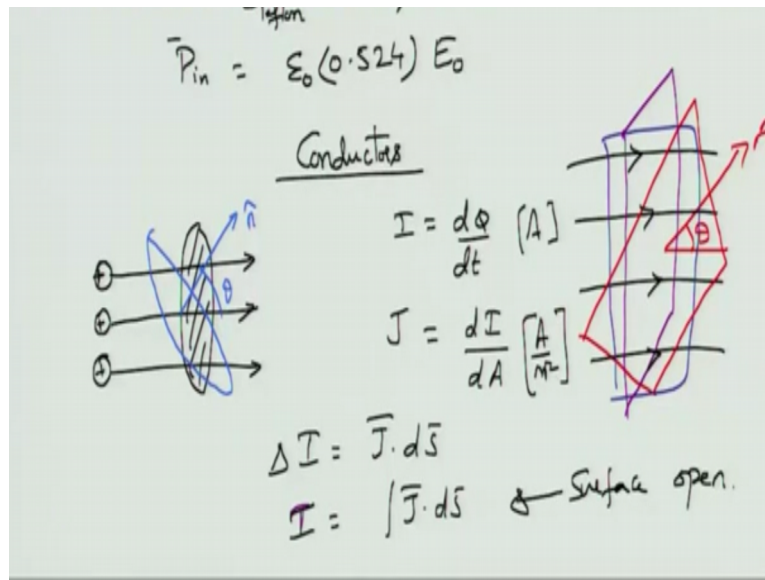 P̄in = ε₀(0.524) E₀
Conductors
n̂
θ
I = dQ/dt [A]
θ
J = dI/dA [A/m²]
ΔI = J̄·ds̄
I = ∫J̄·ds̄ ← Surface open.